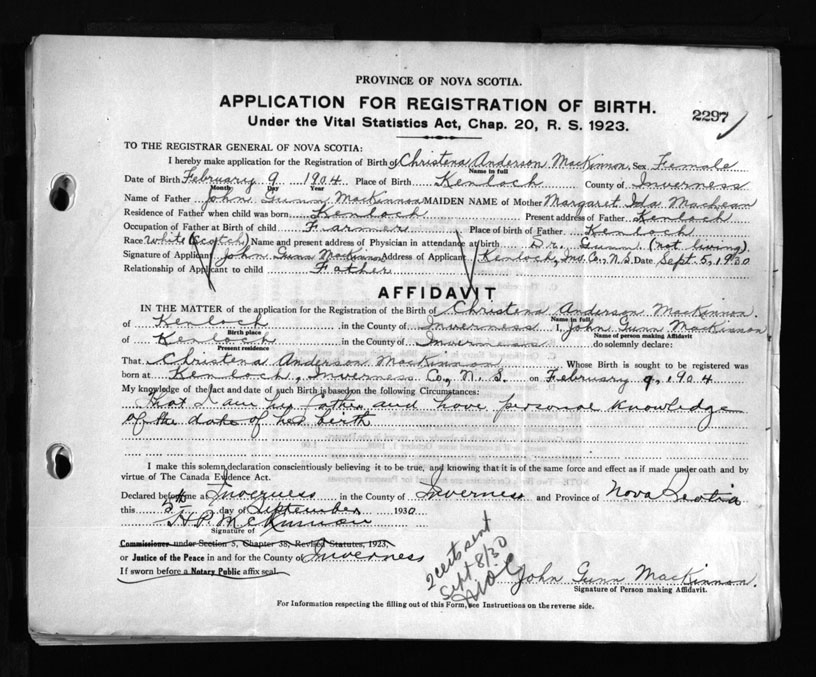 PROVINCE OF NOVA SCOTIA.
APPLICATION FOR REGISTRATION OF BIRTH.
2297
Under the Vital Statistics Act, Chap. 20, R. S. 1923.
TO THE REGISTRAR GENERAL OF NOVA SCOTIA:
I hereby make application for the Registration of Birth of Christena Anderson MacKinnon Sex Female
Name in full
Date of Birth February 9 1904 Place of Birth Kenloch County of Inverness
Month Day Year
Name of Father John Gunn MacKinnon MAIDEN NAME of Mother Margaret Ida MacLean
Residence of Father when child was born, Kenloch Present address of Father Kenloch
Occupation of Father at Birth of child Farmer Place of birth of Father Kenloch
Race White (Scotch) Name and present address of Physician in attendance at birth Dr. Gunn (not living)
Signature of Applicant John Gunn MacKinnon Address of Applicant Kenloch, Inv. Co., N.S. Date Sept. 5, 1930
Relationship of Applicant to child Father
AFFIDAVIT
IN THE MATTER of the application for the Registration of the Birth of Christena Anderson MacKinnon.
Name in full
of Kenloch in the County of Inverness I, John Gunn MacKinnon
Birth place Name of person making Affidavit
of Kenloch in the County of Inverness do solemnly declare:
Present residence
That Christena Anderson MacKinnon Whose Birth is sought to be registered was
born at Kenloch, Inverness Co., N. S. on February 9, 1904
My knowledge of the fact and date of such Birth is based on the following Circumstances:
That I am her father and have personal knowledge
of the date of her birth
I make this solemn declaration conscientiously believing it to be true, and knowing that it is of the same force and effect as if made under oath and by
virtue of The Canada Evidence Act.
Declared before me at Inverness in the County of Inverness and Province of Nova Scotia
this 5th day of September 1930
Signature of
Commissioner under Section 5, Chapter 38, Revised Statutes, 1923,
or Justice of the Peace in and for the County of Inverness
If sworn before a Notary Public affix seal.
2 certs sent
Sept 8/30
John Gunn MacKinnon.
Signature of Person making Affidavit.
For Information respecting the filling out of this Form, see Instructions on the reverse side.